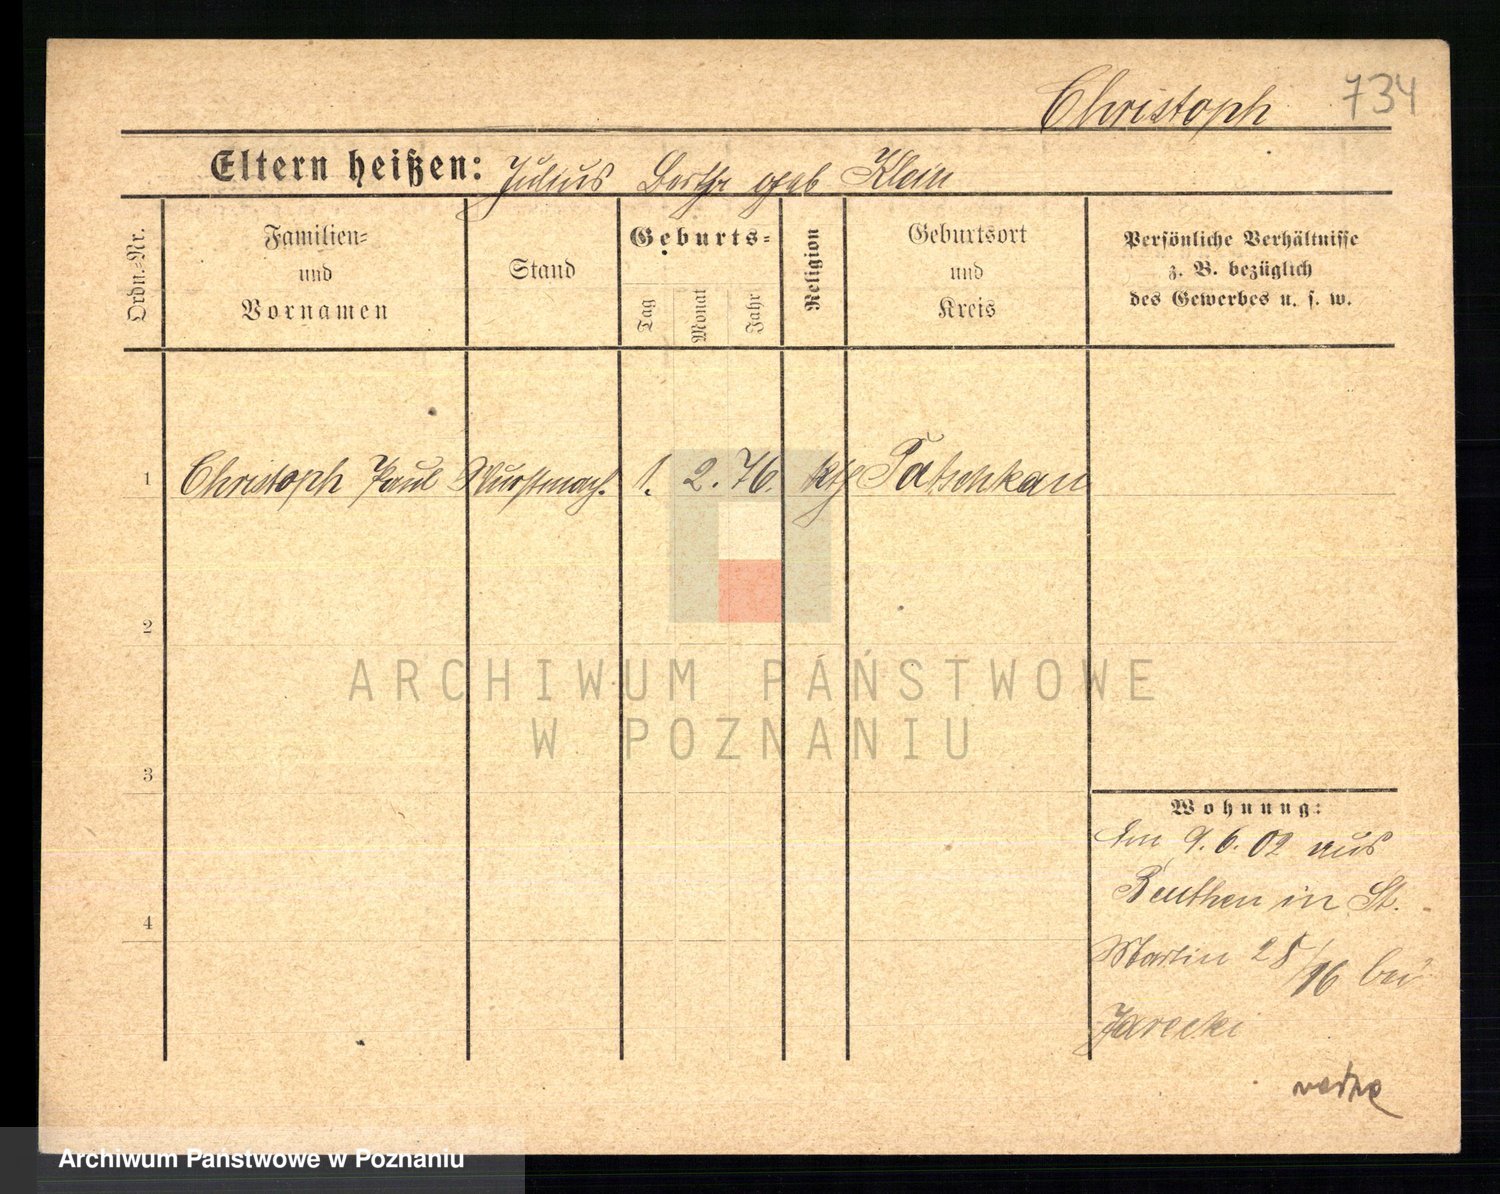 Christoph 734
Eltern heißen: Julius Bertha geb Klein
Ordn.-Nr.
Familien-
und
Vornamen
Stand
Geburts-
Tag
Monat
Jahr
Religion
Geburtsort
und
Kreis
Persönliche Verhältnisse
z. B. bezüglich
des Gewerbes u. s. w.
1 Christoph Paul Wurstmach. 1. 2. 76. kth Patschkau
2
3
4
ARCHIWUM PAŃSTWOWE
W POZNANIU
Wohnung:
den 9. 6. 02 aus
Beuthen in St.
Martin 25/26 bei
Jarecki
Archiwum Państwowe w Poznaniu